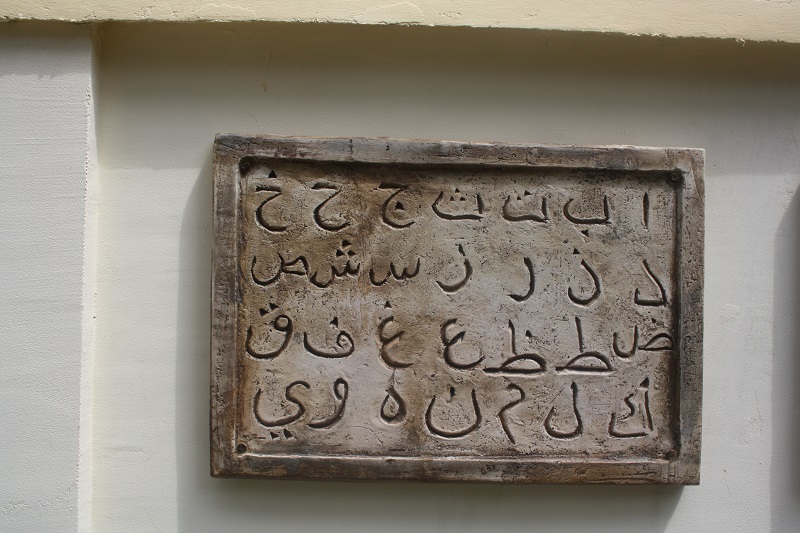 ا ب ت ث ج ح خ
د ذ ر ز س ش ص
ض ط ظ ع غ ف ق
ك ل م ن ه و ي